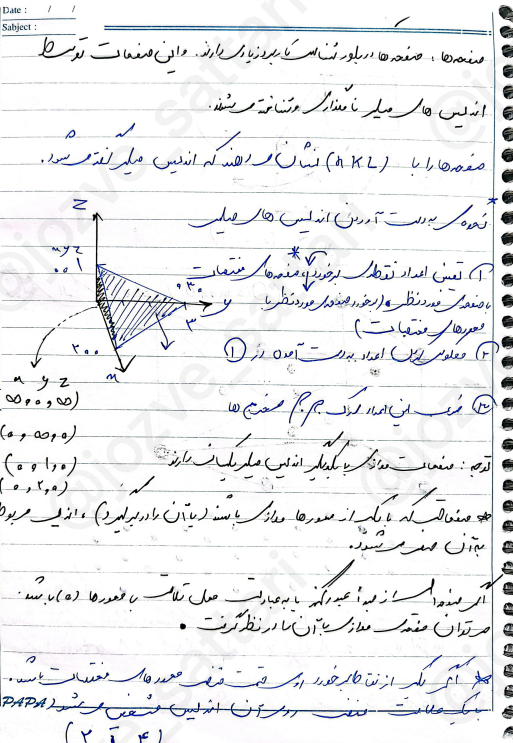 Date : / /
Sabject :
صفحه‌ها : صفحه‌ها در بلور شناسی کاربرد زیادی دارند. و این صفحات توسط
اندیس های میلر نامگذاری و شناخته می شوند.
صفحه‌ها را با (h k L) نشان می دهند که اندیس میلر گفته می شود.
* نحوه‌ی به دست آوردن اندیس های میلر
① تعیین اعداد نقطه‌ی برخورد صفحه‌های مختصات
با صفحه‌ی مورد نظر (برخورد صفحه‌ی مورد نظر با
محورهای مختصات)
② معکوس اعداد به دست آمده در ①
③ ضرب این اعداد در ک م م مخرج ها
Z
x y z
0 0 1
0 3 0
3
y
2 0 0
x
x y z
(∞, 0, ∞)
(0, ∞, 0)
(0, 1, 0)
(0, 2, 0)
توجه : صفحات موازی با یکدیگر اندیس میلر یکسان دارند
* صفحاتی که با یکی از محورها موازی باشند (یا آن را در بر گیرد) ، اندیس مربوط
به آن صفر می شود.
اگر صفحه ای از مبدأ عبور کند یا به عبارت محل تلاقی با محورها (0) باشد.
می توان صفحه‌ی موازی با آن را در نظر گرفت •
* اگر یکی از نقاط برخورد روی قسمت منفی محورهای مختصات باشد.
با یک علامت منفی روی آن اندیس مشخص می شود
PAPA
(2 1̄ 4)